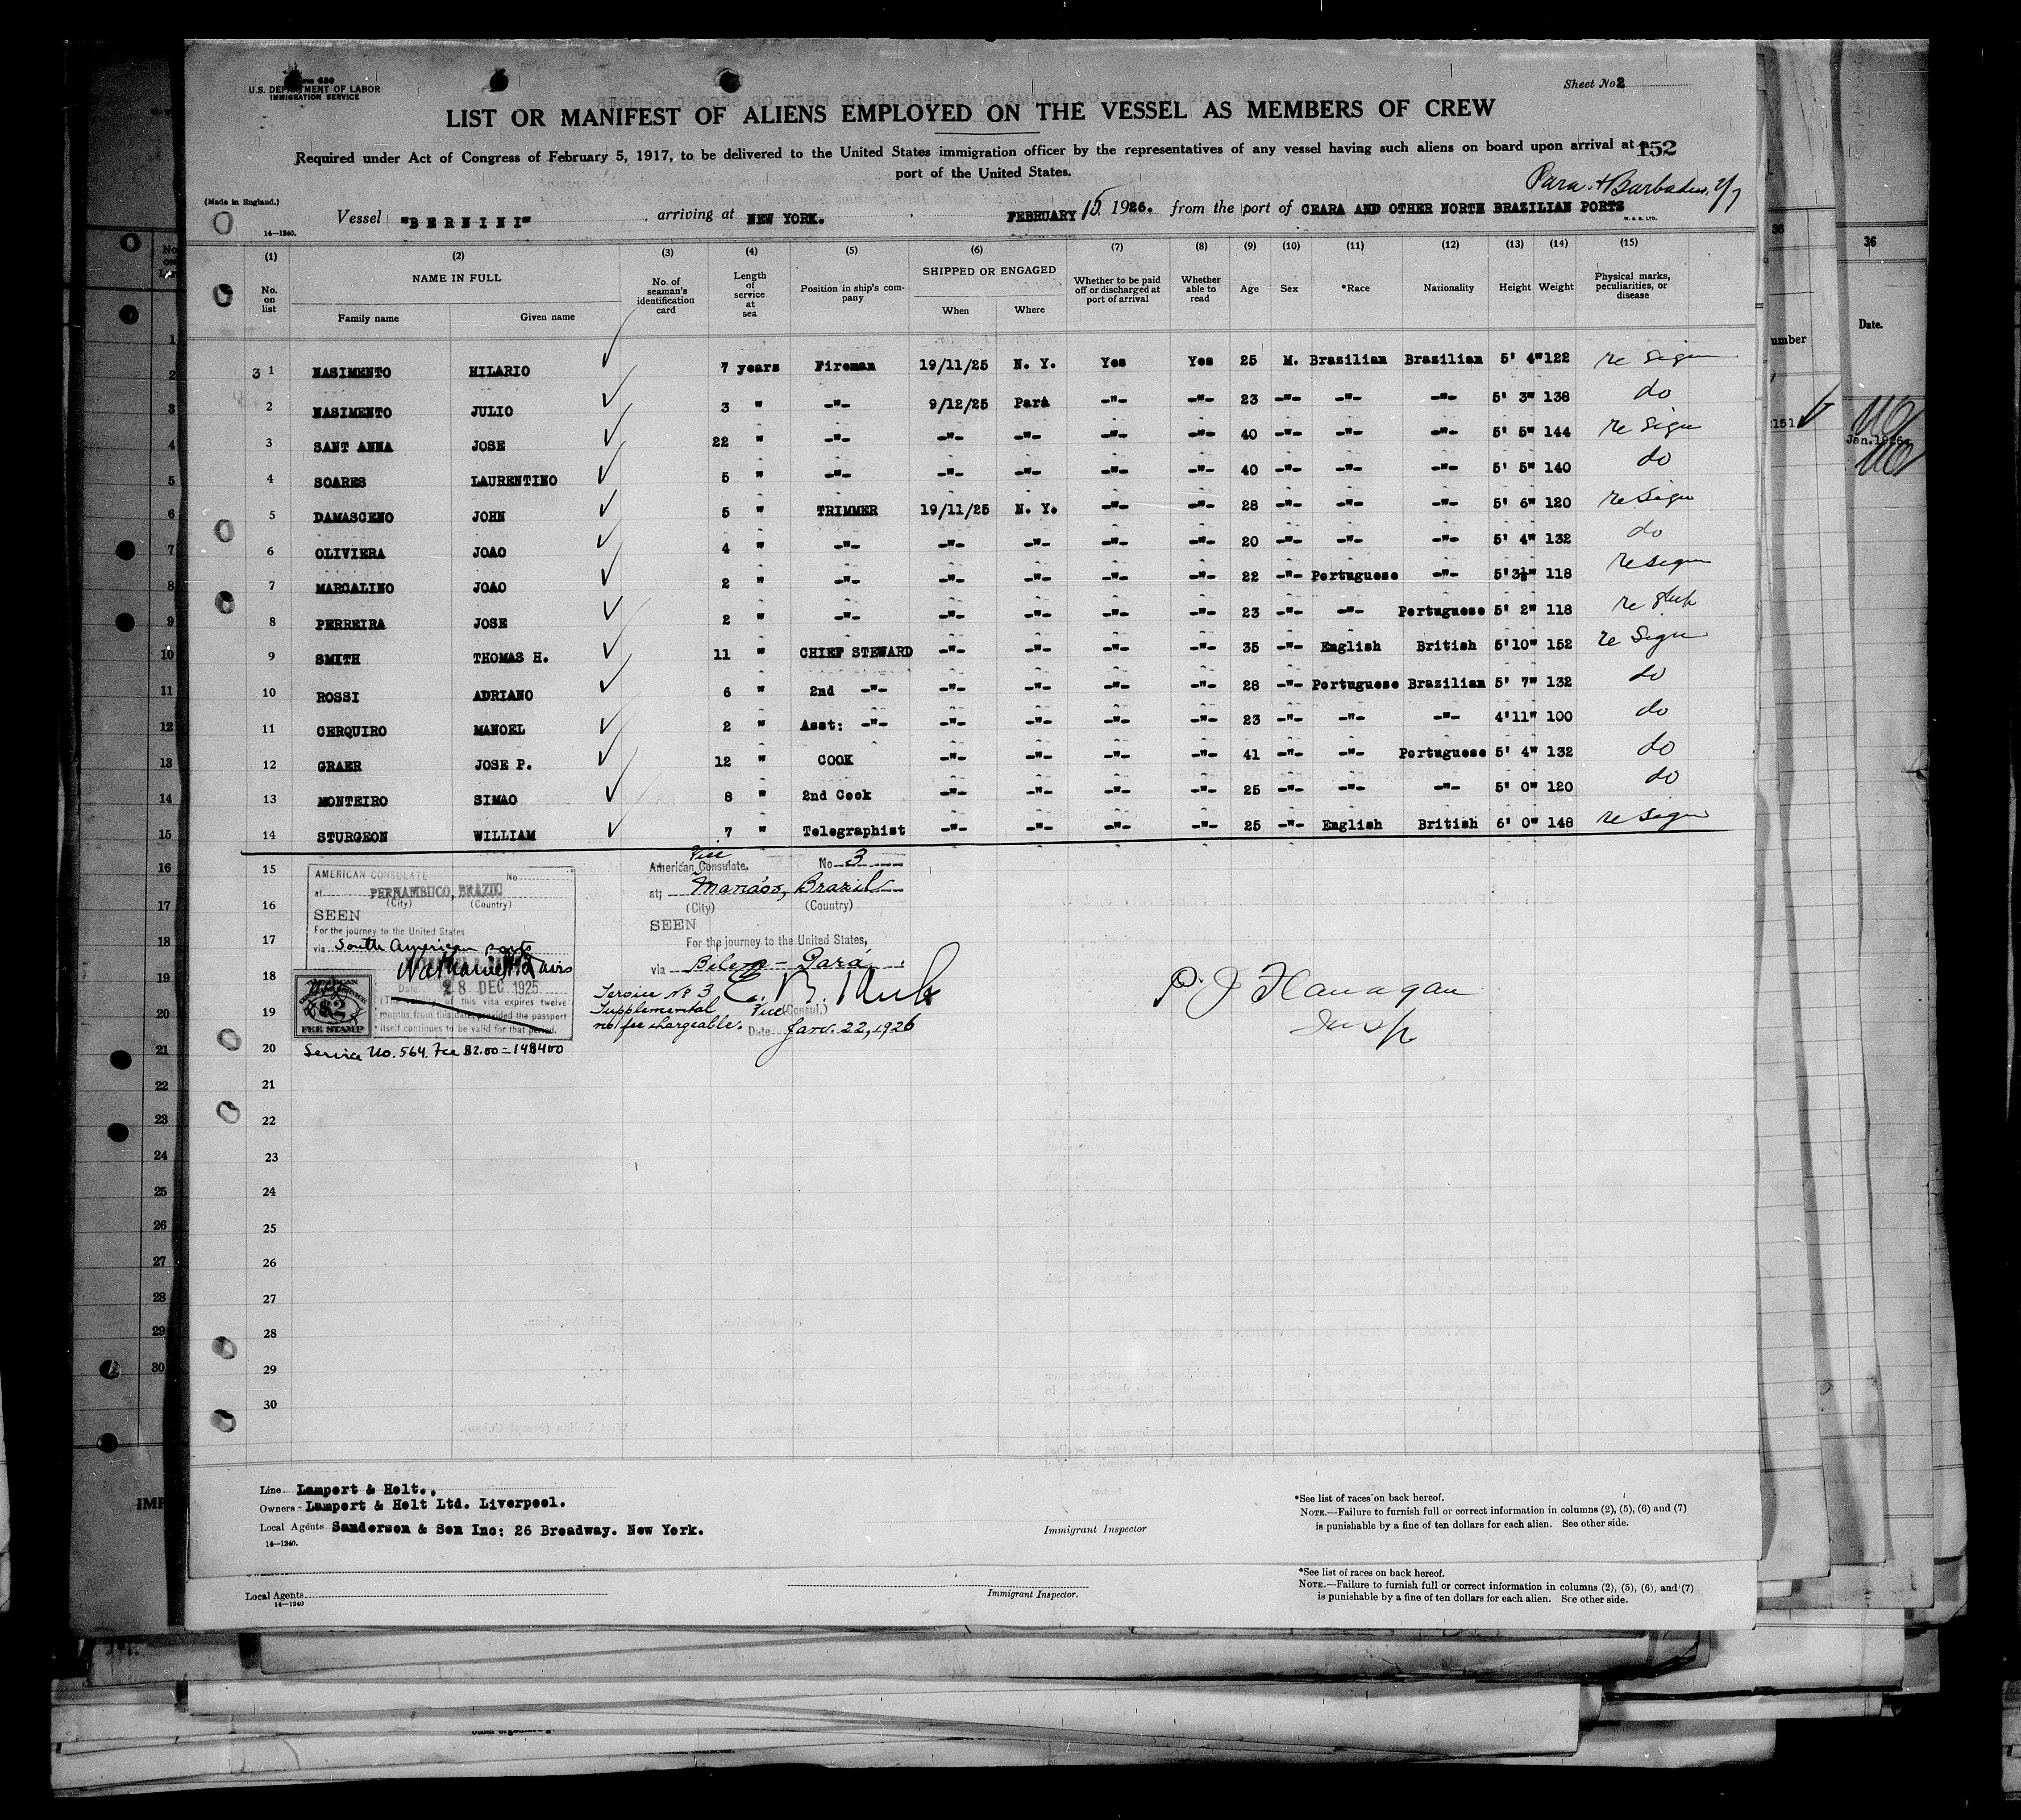 Form 680
U.S. DEPARTMENT OF LABOR
IMMIGRATION SERVICE
Sheet No 2
LIST OR MANIFEST OF ALIENS EMPLOYED ON THE VESSEL AS MEMBERS OF CREW
Required under Act of Congress of February 5, 1917, to be delivered to the United States immigration officer by the representatives of any vessel having such aliens on board upon arrival at a 152
port of the United States.
Para. + Barbados. 2/7
(Made in England.)
Vessel "BERNINI" , arriving at NEW YORK. FEBRUARY 15 1926. from the port of CEARA AND OTHER NORTH BRAZILIAN PORTS
14—1240.
W. & S. LTD.
(1) (2) (3) (4) (5) (6) (7) (8) (9) (10) (11) (12) (13) (14) (15)
No. on list NAME IN FULL Family name Given name No. of seaman's identification card Length of service at sea Position in ship's company SHIPPED OR ENGAGED When Where Whether to be paid off or discharged at port of arrival Whether able to read Age Sex *Race Nationality Height Weight Physical marks, peculiarities, or disease
3 1 NASIMENTO HILARIO 7 years Fireman 19/11/25 N. Y. Yes Yes 25 M. Brazilian Brazilian 5' 4" 122 re Sign
2 NASIMENTO JULIO 3 " -"- 9/12/25 Para -"- -"- 23 -"- -"- -"- 5' 3" 138 do
3 SANT ANNA JOSE 22 " -"- -"- -"- -"- -"- 40 -"- -"- -"- 5' 5" 144 re Sign
4 SOARES LAURENTINO 5 " -"- -"- -"- -"- -"- 40 -"- -"- -"- 5' 5" 140 do
5 DAMASCENO JOHN 5 " TRIMMER 19/11/25 N. Y. -"- -"- 28 -"- -"- -"- 5' 6" 120 re Sign
6 OLIVIERA JOAO 4 " -"- -"- -"- -"- -"- 20 -"- -"- -"- 5' 4" 132 do
7 MARCALINO JOAO 2 " -"- -"- -"- -"- -"- 22 -"- Portuguese -"- 5'3½" 118 re sign
8 PERREIRA JOSE 2 " -"- -"- -"- -"- -"- 23 -"- -"- Portuguese 5' 2" 118 re
9 SMITH THOMAS H. 11 " CHIEF STEWARD -"- -"- -"- -"- 35 -"- English British 5'10" 152 re Sign
10 ROSSI ADRIANO 6 " 2nd -"- -"- -"- -"- -"- 28 -"- Portuguese Brazilian 5' 7" 132 do
11 CERQUIRO MANOEL 2 " Asst: -"- -"- -"- -"- -"- 23 -"- -"- -"- 4'11" 100 do
12 GRAER JOSE P. 12 " COOK -"- -"- -"- -"- 41 -"- -"- Portuguese 5' 4" 132 do
13 MONTEIRO SIMAO 8 " 2nd Cook -"- -"- -"- -"- 25 -"- -"- -"- 5' 0" 120 do
14 STURGEON WILLIAM 7 " Telegraphist -"- -"- -"- -"- 25 -"- English British 6' 0" 148 re Sign
15
16
17
18
19
20
21
22
23
24
25
26
27
28
29
30
AMERICAN CONSULATE No
at PERNAMBUCO, BRAZIL
(City) (Country)
SEEN
For the journey to the United States
via South American ports
Nathaniel P. Davis
Date 28 DEC 1925
(The validity of this visa expires twelve
months from this date, provided the passport
itself continues to be valid for that period.
AMERICAN
FEE STAMP
Service No. 564. Fee $2.00 = 14$400
Vice
American Consulate, No 3
at; Manáos, Brazil
(City) (Country)
SEEN
For the journey to the United States,
via Belem - Pará
Service Nº 3
Supplemental Vice (Consul.)
no fee chargeable. Date Janu. 22, 1926
P. J. Flanagan
Insp
Line Lamport & Holt.,
Owners Lamport & Holt Ltd. Liverpool.
Local Agents Sanderson & Son Inc: 26 Broadway. New York.
14—1240.
Immigrant Inspector
*See list of races on back hereof.
NOTE.—Failure to furnish full or correct information in columns (2), (5), (6) and (7)
is punishable by a fine of ten dollars for each alien. See other side.
Local Agents
14—1240
Immigrant Inspector.
*See list of races on back hereof.
NOTE.—Failure to furnish full or correct information in columns (2), (5), (6), and (7)
is punishable by a fine of ten dollars for each alien. See other side.
36
36
umber
Date.
2151
Jan. 1926